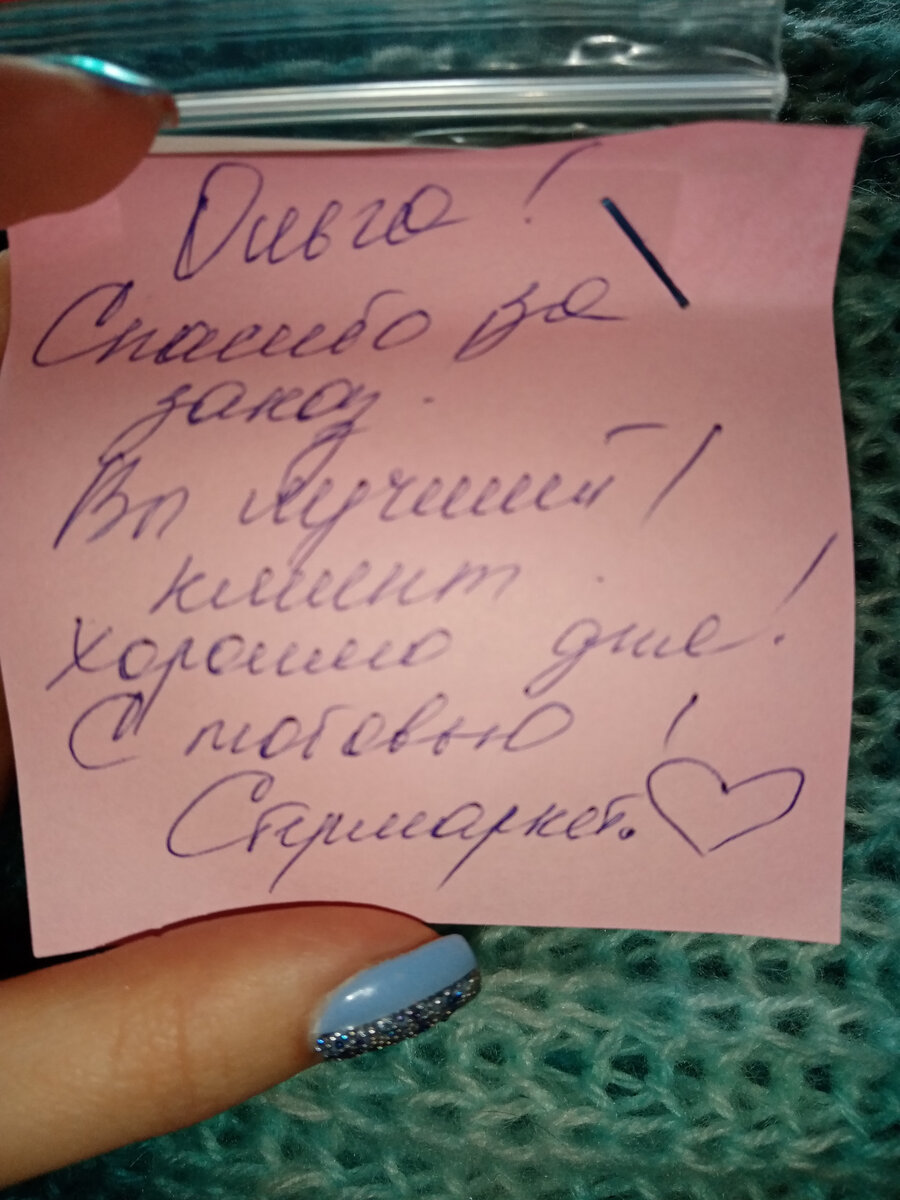 Ольга!
Спасибо за
заказ.
Вы лучший!
клиент.
Хорошго дня!
С любовью!
Стрмаркет.